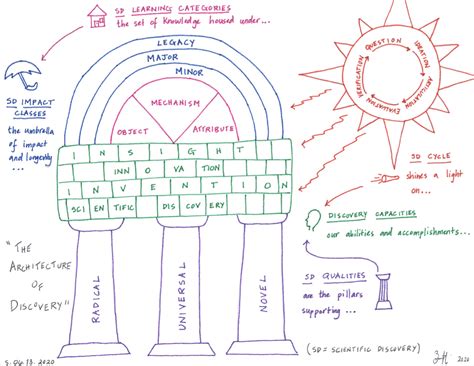 SD LEARNING CATEGORIES
the set of knowledge housed under...
LEGACY
MAJOR
MINOR
MECHANISM
OBJECT
ATTRIBUTE
QUESTION
IDEATION
ARTICULATION
EVALUATION
VERIFICATION
SD IMPACT
CLASSES
the umbrella
of impact
and longevity
...
INSIGHT
INNOVATION
INVENTION
SCIENTIFIC DISCOVERY
SD CYCLE
shines a light
on...
DISCOVERY CAPACITIES
our abilities and accomplishments...
SD QUALITIES
are the pillars
supporting...
"THE
ARCHITECTURE
OF
DISCOVERY"
RADICAL
UNIVERSAL
NOVEL
(SD = SCIENTIFIC DISCOVERY)
2020